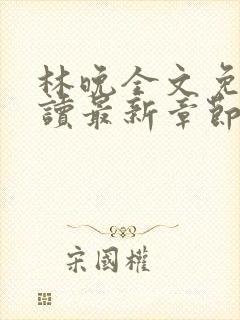 林晚全文免
讀最新章節
宋國權